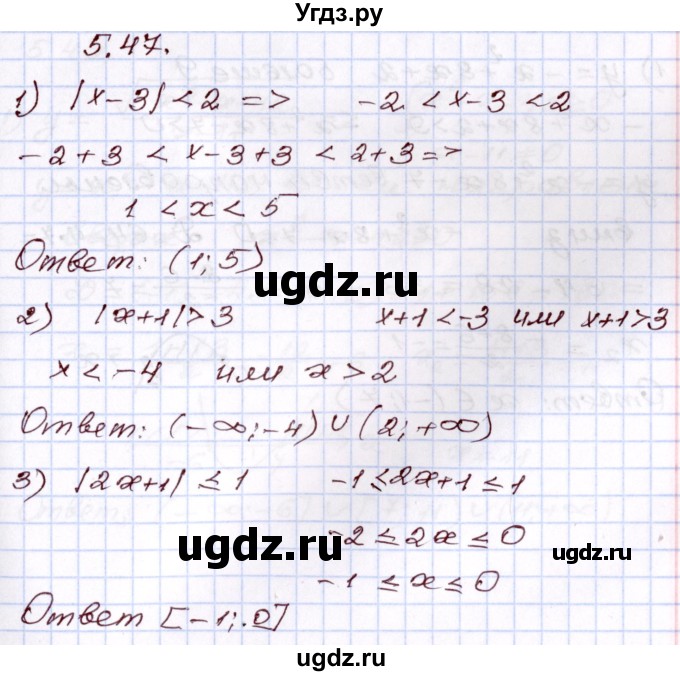 Угдз.ру
5.47.
1) |x-3|<2 => -2<x-3<2
-2+3 < x-3+3 < 2+3 =>
1<x<5
Ответ: (1;5)
ugdz.ru
2) |x+1|>3 x+1<-3 или x+1>3
x<-4 или x>2
Ответ: (-∞;-4)∪(2;+∞)
3) |2x+1|≤1 -1≤2x+1≤1
ugdz.ru
-2≤2x≤0
-1≤x≤0
Ответ [-1;0]
ugdz.ru